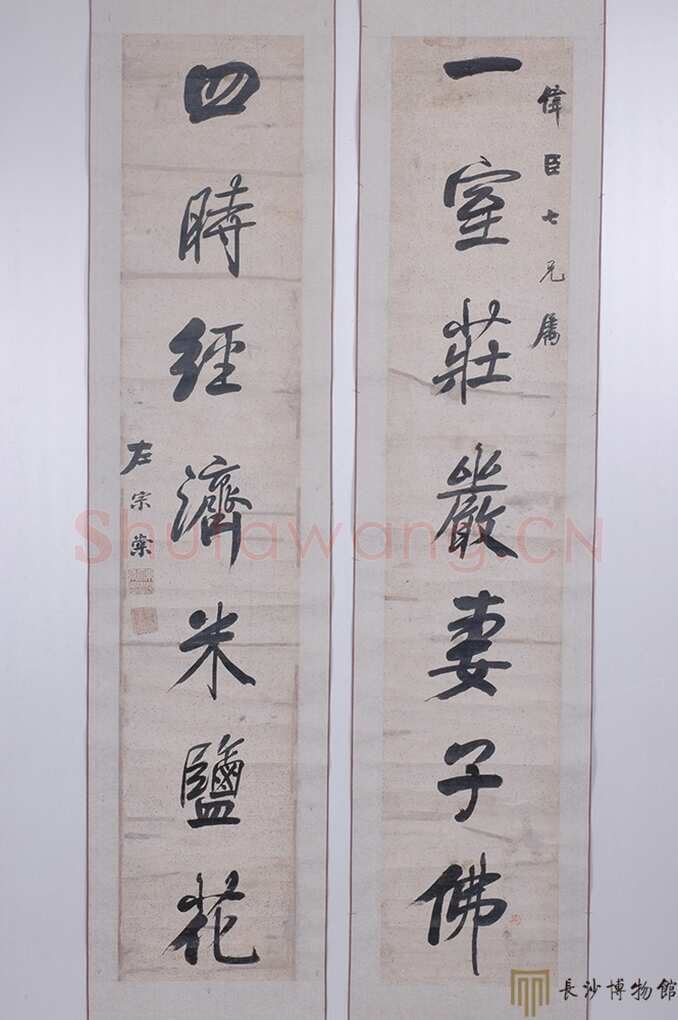 偉臣七兄屬
一室莊嚴妻子佛
四時經濟米鹽花
左宗棠
Shufawang.CN
長沙博物館